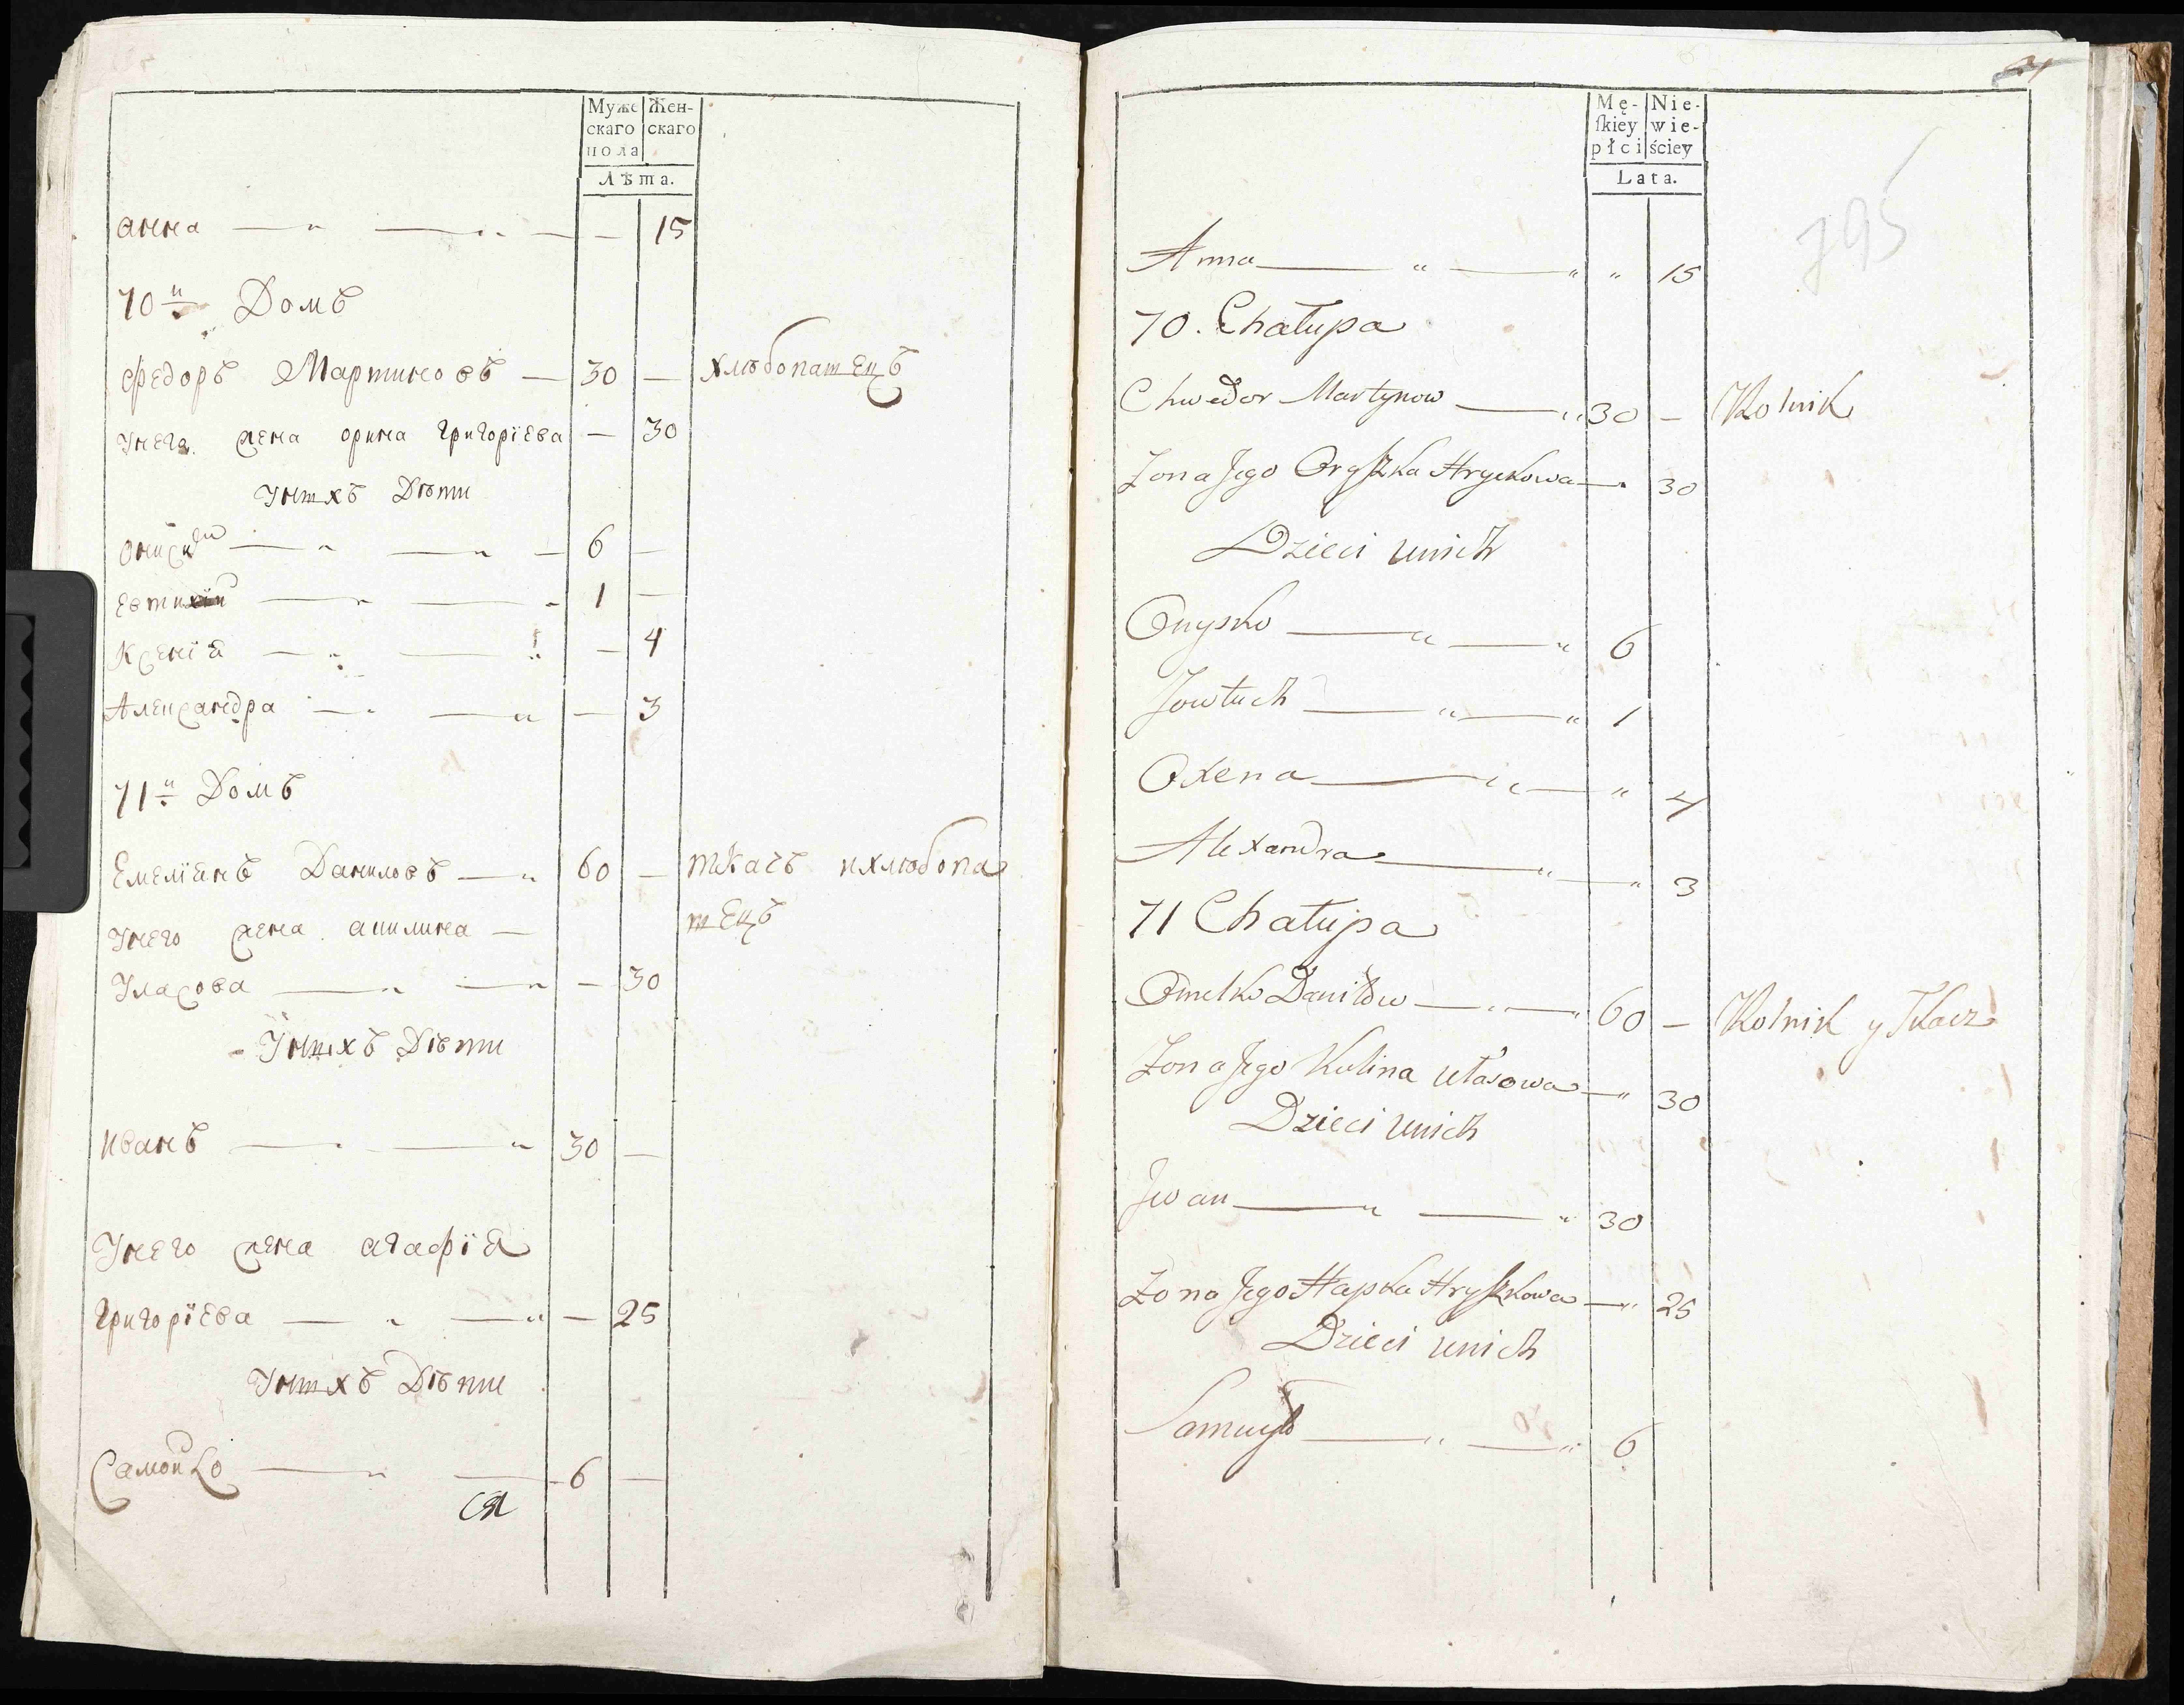 Муже Жен-
скаго скаго
пола
Лѣта.
анна — „ — „ — — 15
70й Домъ
Федоръ Мартиновъ — 30 — хлѣбопашецъ
Унего жена орина григоріева — 30
Унихъ Дѣти
Онисій — „ — „ — 6 —
Евтихій — „ — „ 1 —
Ксенія — „ — „ — 4
Александра — „ — „ — 3
71й Домъ
Емеліанъ Даниловъ — „ 60 — ткачъ ихлѣбопа
Унего жена акилина — шецъ
Уласова — „ — „ — 30
Унихъ Дѣти
иванъ — „ — „ 30 —
Унего жена агафія
григоріева — „ — „ — 25
Унихъ Дѣти
Самойло — „ — 6 —
Mę- Nie-
ſkiey wie-
płci ściey
Lata.
795
Anna — „ — „ „ 15
70. Chałupa
Chwedor Martynow — „ 30 — Rolnik
Żona Jego Oryszka Hryckowa — „ 30
Dzieci unich
Onysko — „ — „ 6
Jowtuch — „ — „ 1
Oxena — „ — „ 4
Alexandra — „ — „ 3
71 Chałupa
Omelko Daniłow — „ — „ 60 — Rolnik y Tkacz
Żona Jego Kulina Ułasowa — „ 30
Dzieci unich
Jwan — „ — „ 30
Żona Jego Hapka Hryszkowa — „ 25
Dzieci unich
Samuyło — „ — „ 6